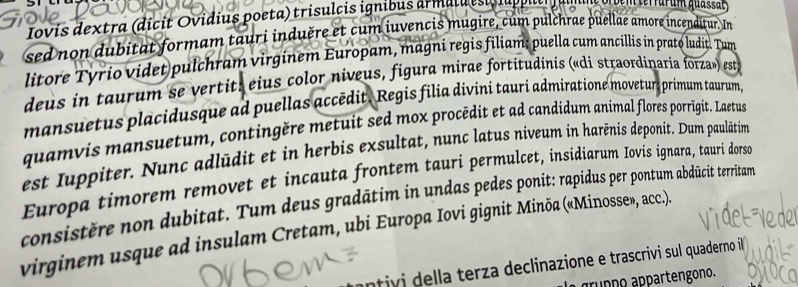 Iovis dextra (dicit Ovidius poeta) trisulcis ignibus armata est, Iuppiter
sed non dubitat formam tauri induĕre et cum iuvencis mugire, cum pulchrae puellae amore incenditur. In
litore Tyrio videt pulchram virginem Europam, magni regis filiam; puella cum ancillis in prato ludit. Tum
deus in taurum se vertit: eius color niveus, figura mirae fortitudinis («di straordinaria forza») est;
mansuetus placidusque ad puellas accēdit. Regis filia divini tauri admiratione movetur; primum taurum,
quamvis mansuetum, contingĕre metuit sed mox procēdit et ad candidum animal flores porrīgit. Laetus
est Iuppiter. Nunc adlūdit et in herbis exsultat, nunc latus niveum in harēnis deponit. Dum paulātim
Europa timorem removet et incauta frontem tauri permulcet, insidiarum Iovis ignara, tauri dorso
consistĕre non dubitat. Tum deus gradātim in undas pedes ponit: rapidus per pontum abdūcit territam
virginem usque ad insulam Cretam, ubi Europa Iovi gignit Minōa («Minosse», acc.).
videt=veder
orbem=
ludit=
gioca
della terza declinazione e trascrivi sul quaderno il
gruppo appartengono.